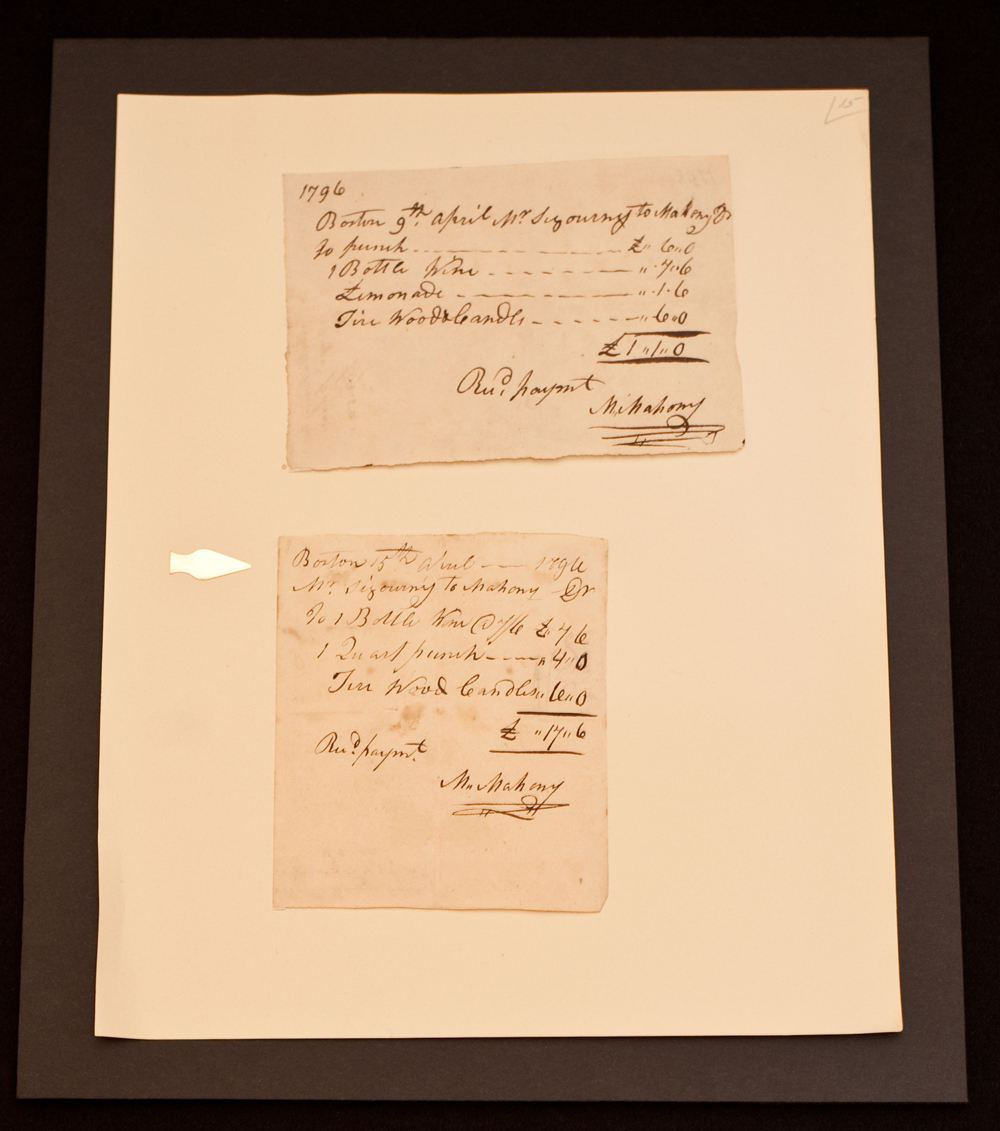 25
1796
Boston 9th. April Mr Sigourney to Mahony Dr
To punch £„ 6„0
1 Bottle Wine „ 7„6
Lemonade „ 1 6
Fire Wood & Candls „ 6„0
£ 1„1„0
Recd. paymt
M. Mahony
Boston 15th April 1796
Mr. Sigourny to Mahony Dr
To 1 Bottle Wine @ 7/6 £„ 7„6
1 Quart punch „ 4„0
Fire Wood Candles „ 6„0
£ „17„6
Recd. paymt.
M„ Mahony